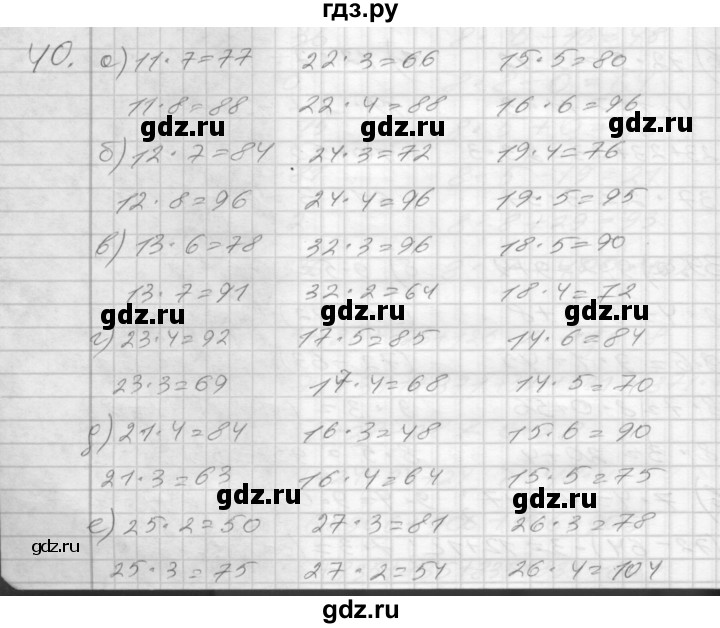 гдз.ру
40. а) 11·7=77 22·3=66 15·5=80
11·8=88 22·4=88 16·6=96
gdz.ru gdz.ru gdz.ru
б) 12·7=84 24·3=72 19·4=76
12·8=96 24·4=96 19·5=95
в) 13·6=78 32·3=96 18·5=90
13·7=91 32·2=64 18·4=72
gdz.ru gdz.ru gdz.ru
г) 23·4=92 17·5=85 14·6=84
23·3=69 17·4=68 14·5=70
д) 21·4=84 16·3=48 15·6=90
21·3=63 16·4=64 15·5=75
gdz.ru gdz.ru
е) 25·2=50 27·3=81 26·3=78
gdz.ru
25·3=75 27·2=54 26·4=104
gdz.ru